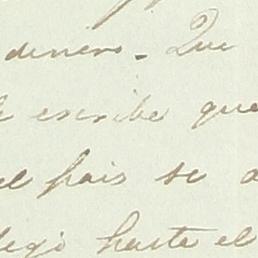 dinero. Que
escribe que
el pais se
hasta el